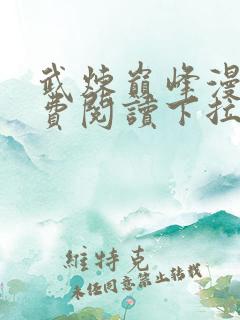 武煉巔峰漫
費閱讀下拉
維特克
未經同意禁止轉載